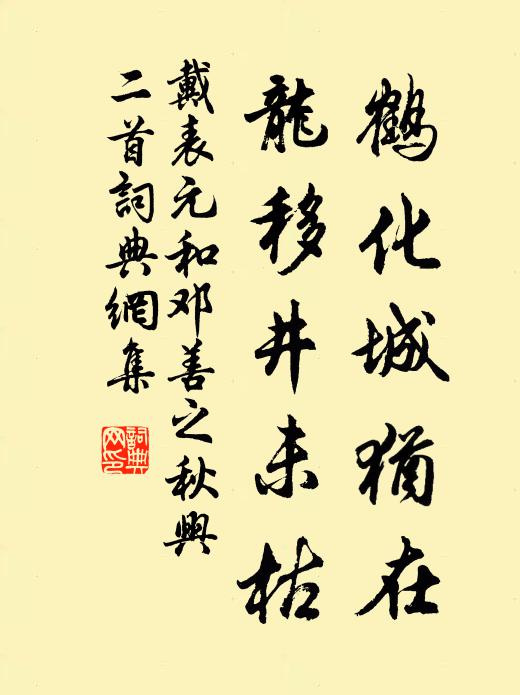 鶴化城猶在
龍移井未枯
戴表元和邓善之秋興
二首詞典網集
詞典
网印